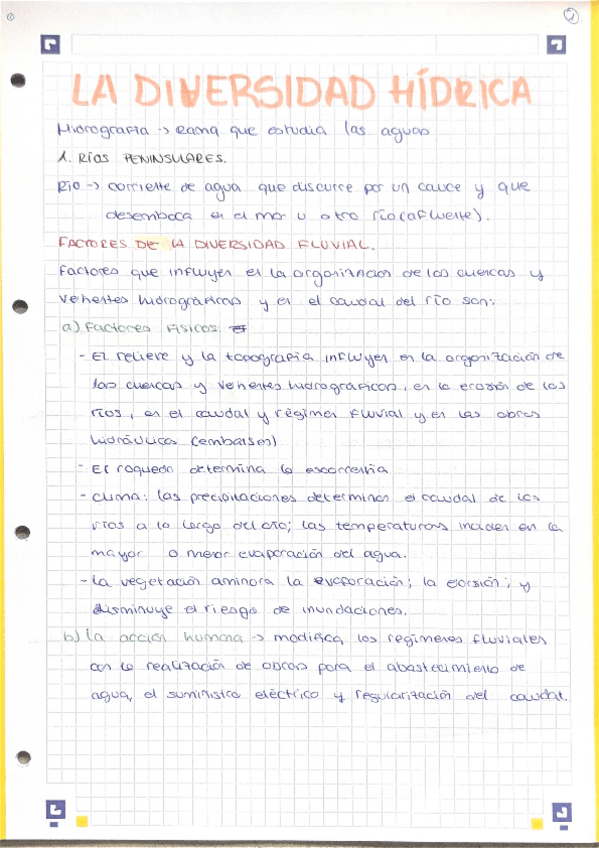 1
LA DIVERSIDAD HÍDRICA
Hidrografía -> Rama que estudia las aguas
1. RÍOS PENINSULARES.
Río -> corriente de agua que discurre por un cauce y que
desemboca en el mar u otro río (afluente).
FACTORES DE LA DIVERSIDAD FLUVIAL.
Factores que influyen en la organización de las cuencas y
vertientes hidrográficas y en el caudal del río son:
a) Factores físicos:
- El relieve y la topografía influyen en la organización de
las cuencas y vertientes hidrográficas, en la erosión de los
ríos, en el caudal y régimen fluvial y en las obras
hidráulicas (embalses)
- El roquedo determina la escorrentía
- Clima: las precipitaciones determinan el caudal de los
ríos a lo largo del año; las temperaturas inciden en la
mayor o menor evaporación del agua.
- La vegetación aminora la evaporación; la eorsión; y
disminuye el riesgo de inundaciones.
b) La acción humana -> modifica los regímenes fluviales
con la realización de obras para el abastecimiento de
agua, el suministro eléctrico y regularización del caudal.